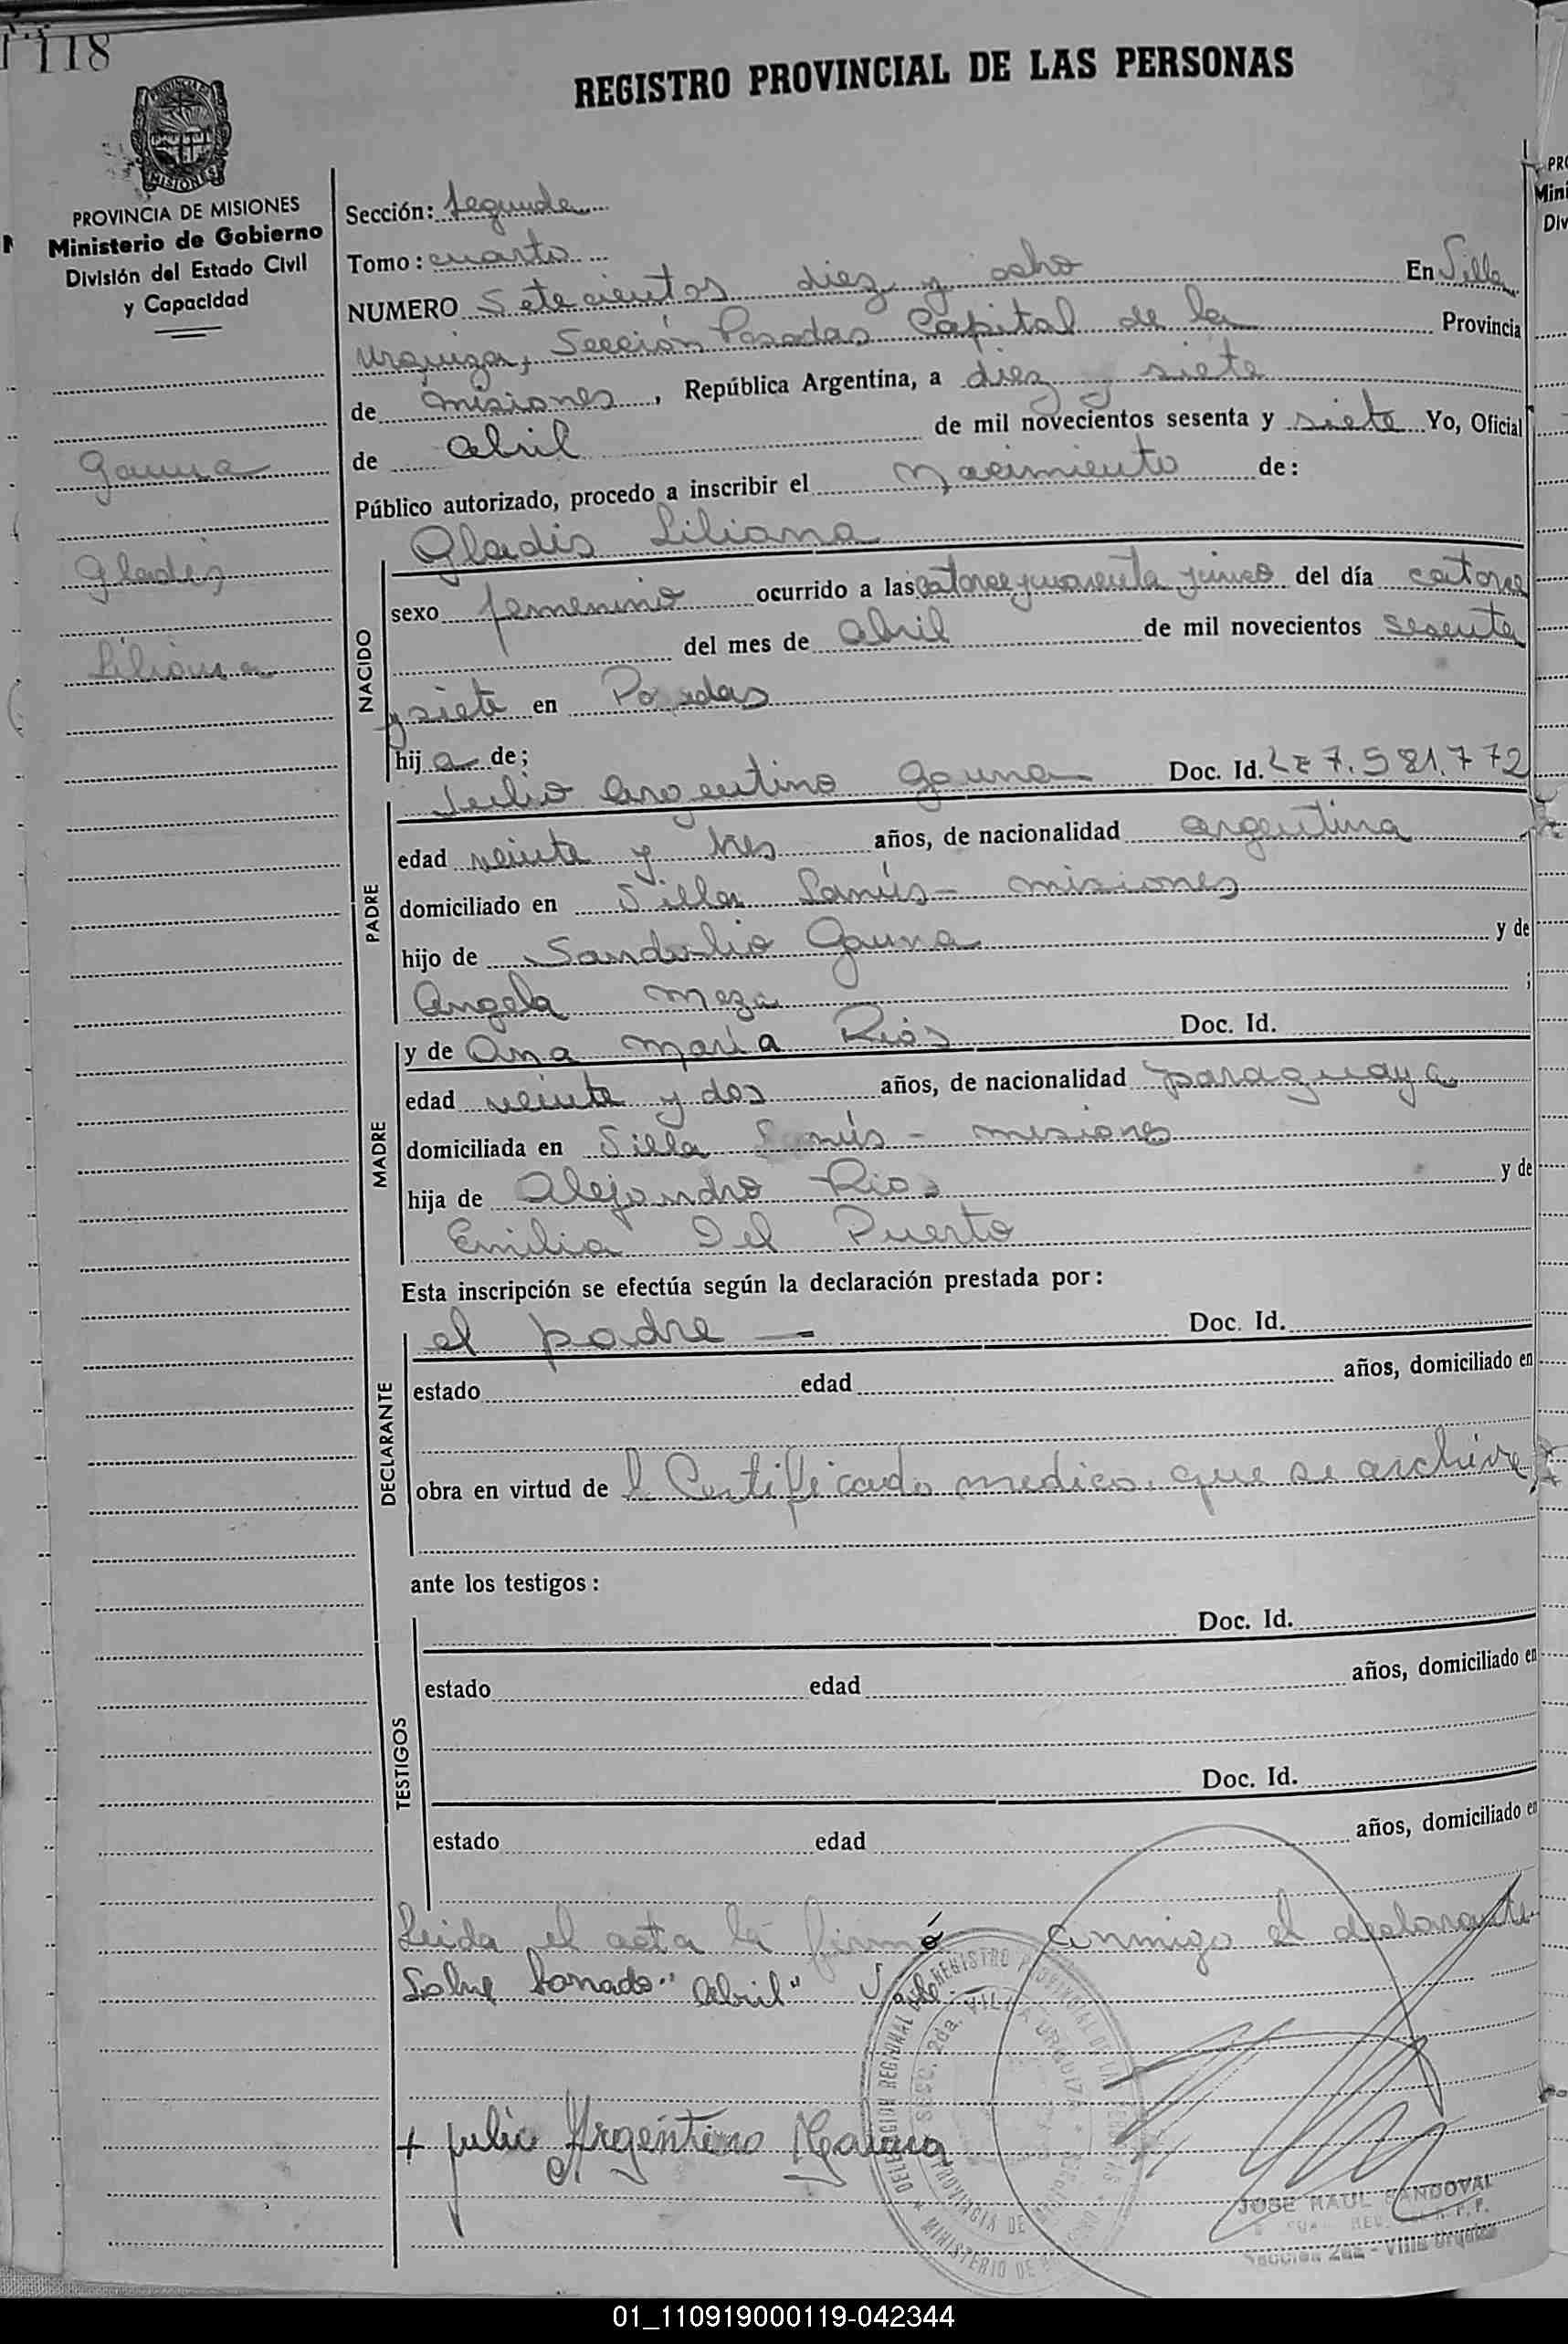 118
REGISTRO PROVINCIAL DE LAS PERSONAS
MISIONES
PROVINCIA DE MISIONES
Ministerio de Gobierno
División del Estado Civil
y Capacidad
Gauna
Gladis
Liliana
Sección: Segunda
Tomo: cuarto
NUMERO Setecientos diez y ocho En Villa
Urquiza, Sección Posadas Capital de la Provincia
de Misiones, República Argentina, a diez y siete
de abril de mil novecientos sesenta y siete Yo, Oficial
Público autorizado, procedo a inscribir el Nacimiento de:
Gladis Liliana
NACIDO
sexo femenino ocurrido a las catorce y cuarenta y cinco del día catorce
del mes de Abril de mil novecientos sesenta
y siete en Posadas
hij a de;
Julio Argentino Gauna Doc. Id. LE 7.581.772
PADRE
edad veinte y tres años, de nacionalidad argentina
domiciliado en Villa Lanús - misiones
hijo de Sandalio Gauna y de
Angela Meza ;
y de Ana María Ríos Doc. Id.
MADRE
edad veinte y dos años, de nacionalidad paraguaya
domiciliada en Villa Lanús - misiones
hija de Alejandro Rios y de
Emilia Del Puerto
Esta inscripción se efectúa según la declaración prestada por:
el padre — Doc. Id.
DECLARANTE
estado edad años, domiciliado en
obra en virtud de l Certificado medico que se archiva
ante los testigos:
TESTIGOS
Doc. Id.
estado edad años, domiciliado en
Doc. Id.
estado edad años, domiciliado en
Leida el acta la firmó conmigo el declarante
Sobre borrado "abril" Vale
+ Julio Argentino Gauna
JOSE RAUL SANDOVAL
Sección 2da - Villa Urquiza
01_110919000119-042344